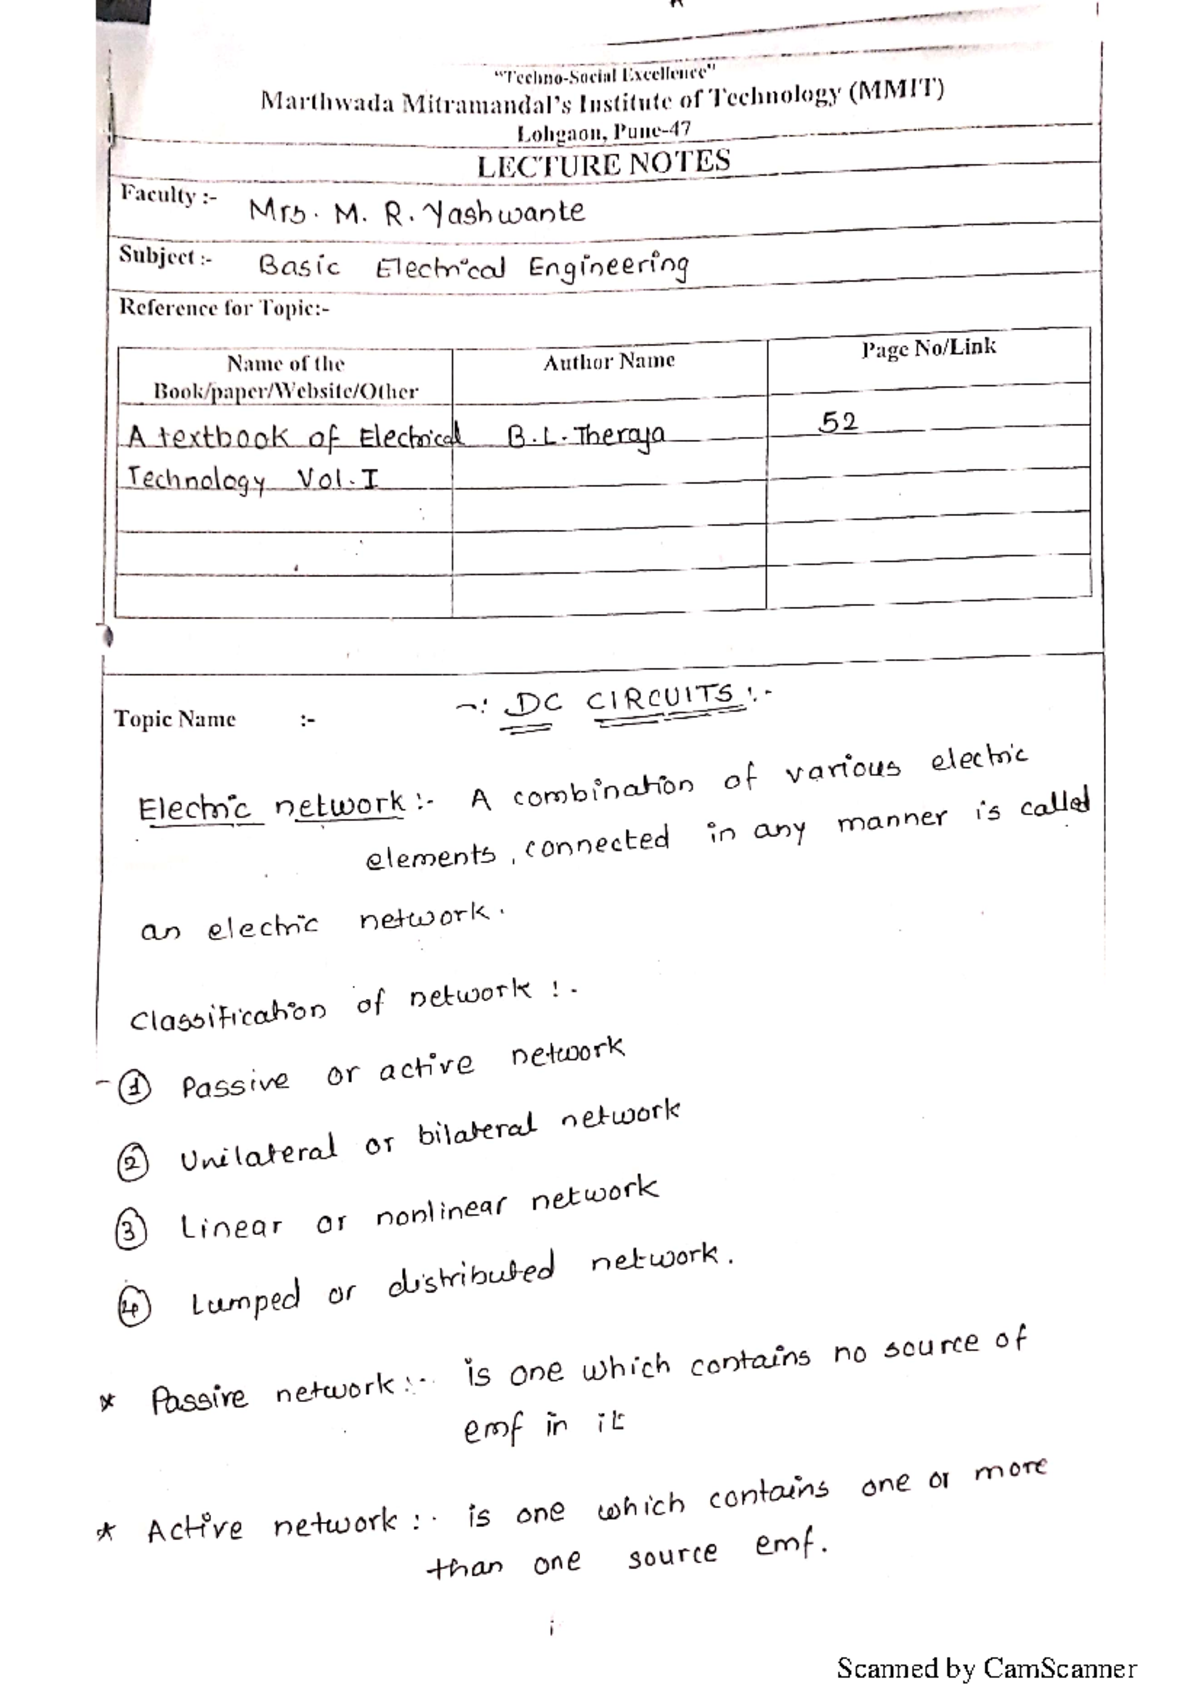 "Techno-Social Excellence"
Marthwada Mitramandal's Institute of Technology (MMIT)
Lohgaon, Pune-47
LECTURE NOTES
Faculty :- Mrs. M. R. Yashwante
Subject :- Basic Electrical Engineering
Reference for Topic:-
Name of the Book/paper/Website/Other Author Name Page No/Link
A textbook of Electrical B.L. Theraja 52
Technology Vol. I
Topic Name :- -: DC CIRCUITS :-
Electric network :- A combination of various electric
elements, connected in any manner is called
an electric network.
Classification of network :-
① Passive or active network
② Unilateral or bilateral network
③ Linear or nonlinear network
④ Lumped or distributed network.
* Passive network :- is one which contains no source of
emf in it
* Active network :- is one which contains one or more
than one source emf.
i
Scanned by CamScanner